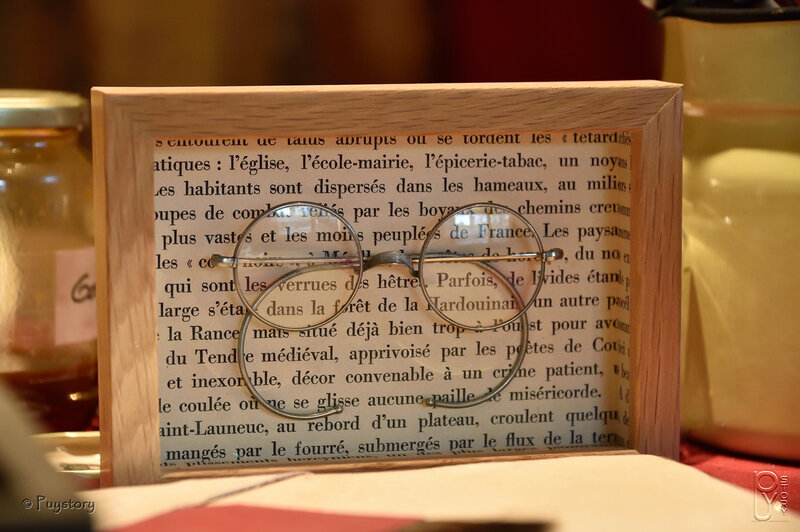 s'entourent de talus abrupts où se tordent les « tetard
atiques : l'église, l'école-mairie, l'épicerie-tabac, un noya
Les habitants sont dispersés dans les hameaux, au milie
oupes de combat reliés par les boyaux des chemins creu
plus vastes et les moins peuplées de France. Les paysa
les « de du no
qui sont les verrues des hêtres. Parfois, de livides étan
large s'éta dans la forêt de la Hardouinais un autre
la Rance mais situé déjà bien trop à l'ouest pour avo
du Tendre médiéval, apprivoisé par les poètes de Cou
et inexorable, décor convenable à un crime patient,
le coulée où ne se glisse aucune paille de miséricorde.
aint-Launeuc, au rebord d'un plateau, croulent quelqu
mangés par le fourré, submergés par le flux de la terr
© Puystory